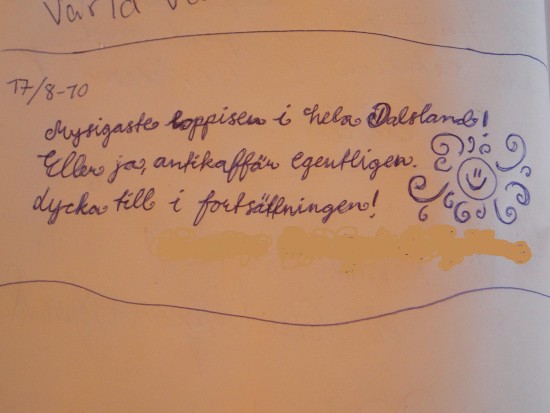 Värld
17/8-10
Mysigaste loppisen i hela Dalsland!
Eller ja, antikaffär egentligen.
Lycka till i fortsättningen!